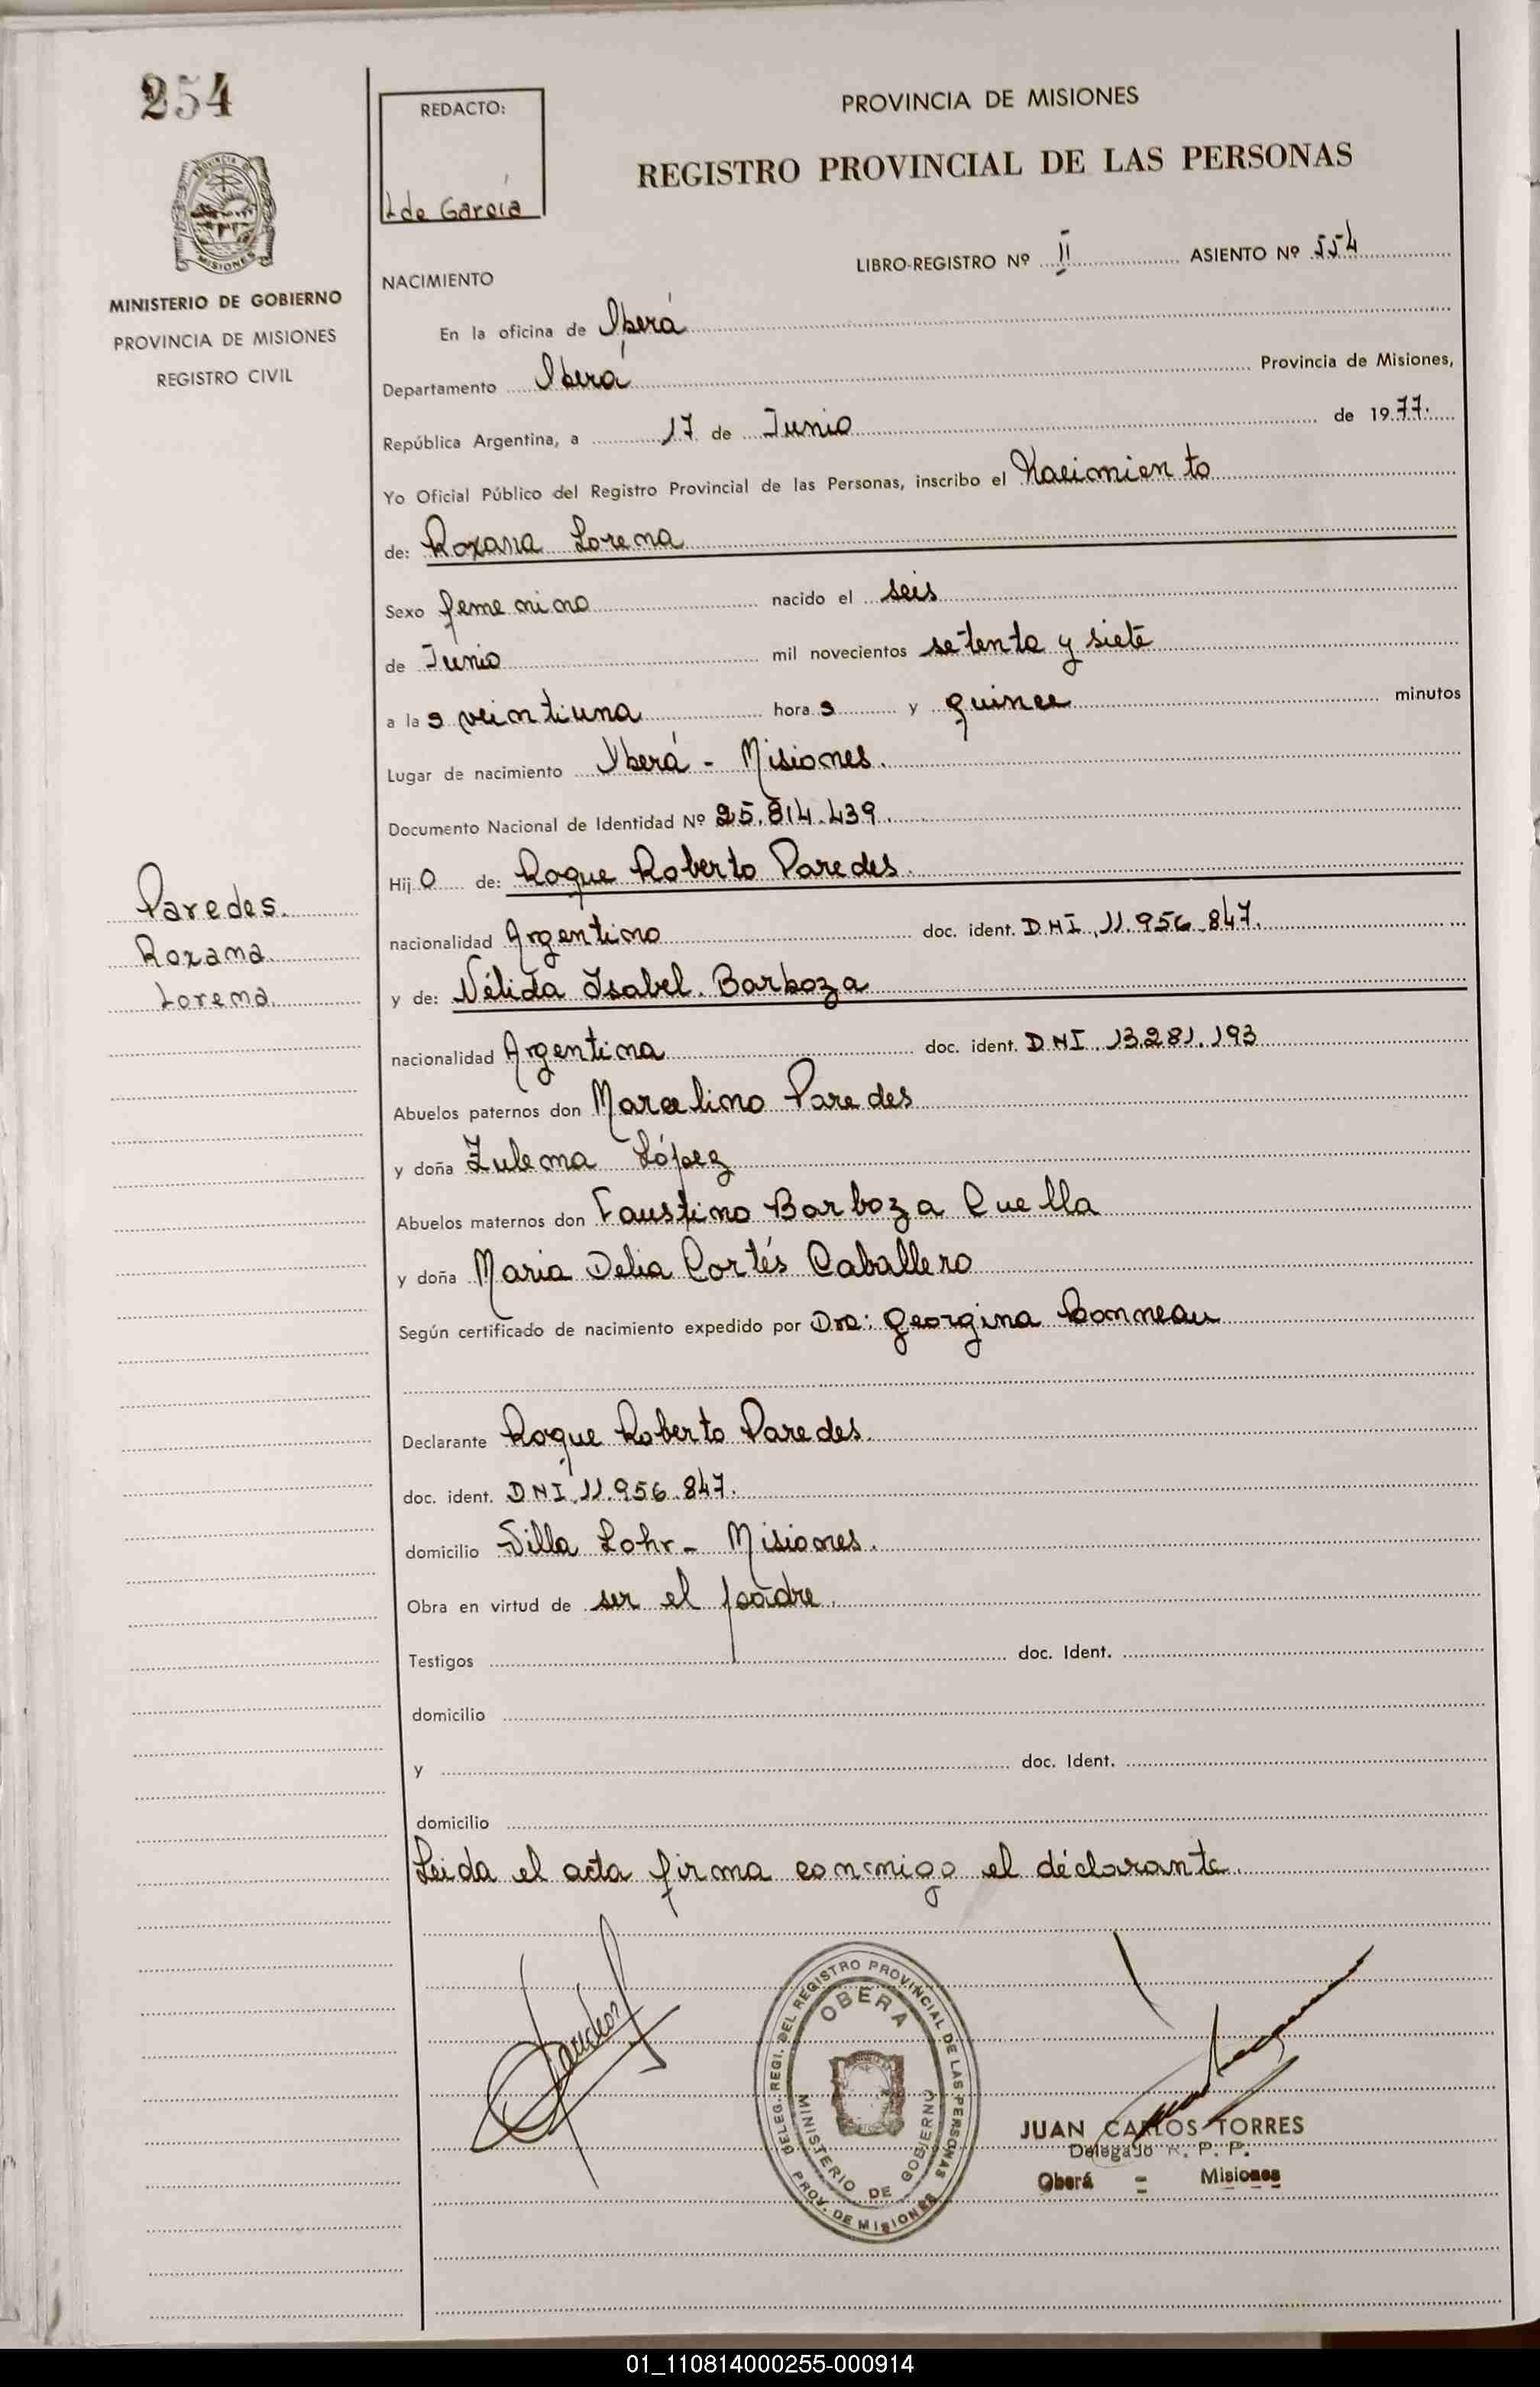 254
REDACTO:
L de García
PROVINCIA DE MISIONES
REGISTRO PROVINCIAL DE LAS PERSONAS
MISIONES
MINISTERIO DE GOBIERNO
PROVINCIA DE MISIONES
REGISTRO CIVIL
LIBRO-REGISTRO Nº II ASIENTO Nº 554
NACIMIENTO
En la oficina de Oberá
Departamento Oberá Provincia de Misiones,
República Argentina, a 17 de Junio de 1977.
Yo Oficial Público del Registro Provincial de las Personas, inscribo el Nacimiento
de: Roxana Lorena
Sexo femenino nacido el seis
de Junio mil novecientos setenta y siete
a las veintiuna horas y quince minutos
Lugar de nacimiento Oberá - Misiones.
Documento Nacional de Identidad Nº 25.814.439.
Hijo de: Roque Roberto Paredes.
Paredes.
Roxana
Lorena
nacionalidad Argentino doc. ident. DNI 11.956.847.
y de: Nélida Isabel. Barboza
nacionalidad Argentina doc. ident. DNI. 13.281.193
Abuelos paternos don Marcelino Paredes
y doña Zulema López
Abuelos maternos don Faustino Barboza Cuella
y doña Maria Delia Cortés Caballero
Según certificado de nacimiento expedido por Dra: Georgina Bonneau
Declarante Roque Roberto Paredes.
doc. ident. DNI 11.956.847.
domicilio Villa Lohr - Misiones.
Obra en virtud de ser el padre.
Testigos doc. Ident.
domicilio
y doc. Ident.
domicilio
Leida el acta firma conmigo el declarante.
DELEG. REGI. DEL REGISTRO PROVINCIAL DE LAS PERSONAS
OBERA
MINISTERIO DE GOBIERNO
PROV. DE MISIONES
JUAN CARLOS TORRES
Delegado R. P. P.
Oberá - Misiones
01_110814000255-000914